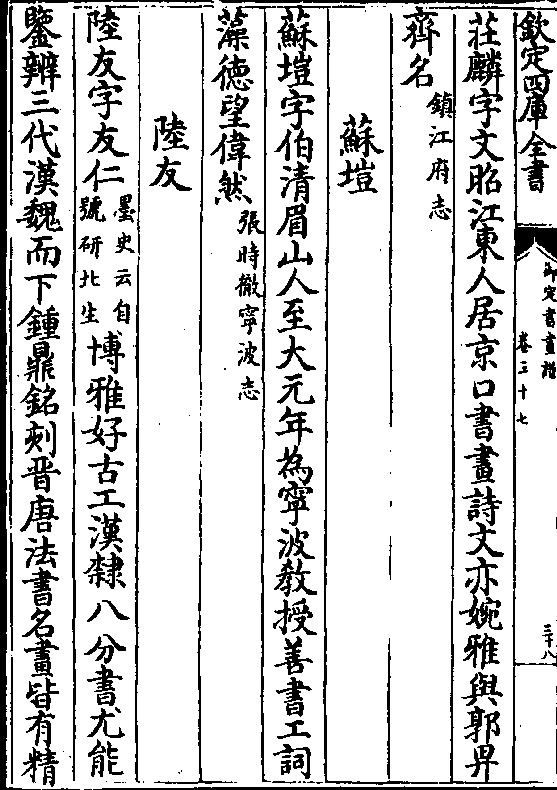 欽定四庫全書
御定書畫譜
卷三十七
三十八
莊麟字文昭江東人居京口書畫詩文亦婉雅與郭畀
齊名鎮江府志
蘇塏
蘇塏字伯清眉山人至大元年為寧波教授善書工詞
藻德望偉然張時徹寧波志
陸友
陸友字友仁墨史云自號研北生博雅好古工漢隸八分書尤能
鑒辨三代漢魏而下鍾鼎銘刻晉唐法書名畫皆有精